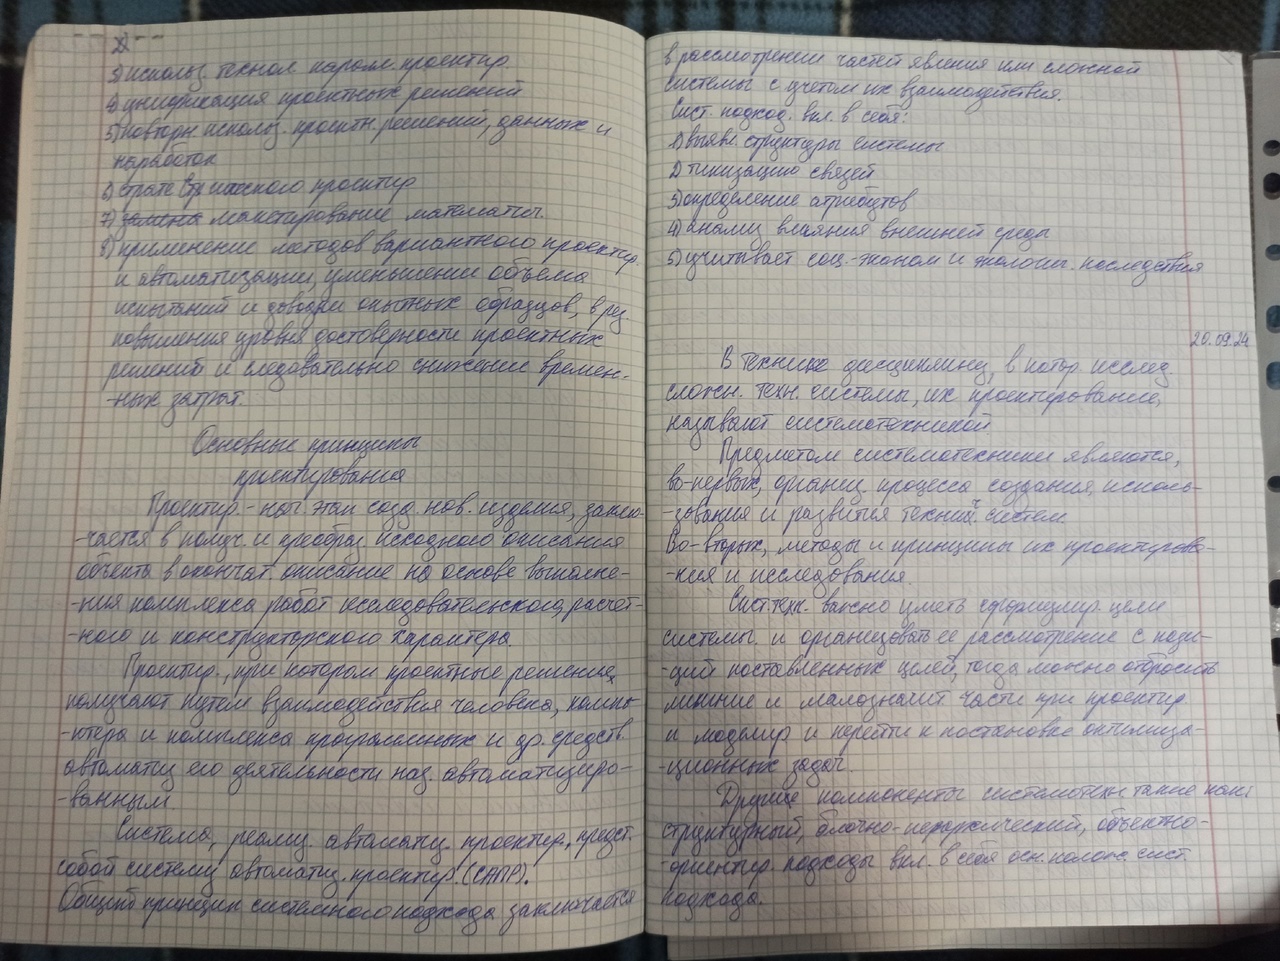 3) использ. технол паром. проектир
4) унификация проектных решений
5) повторн использ. проектн. решений, данных и
наработок
6) страте проектир
7) замена макетирование математич.
8) применение методов вариантного проектир.
и автоматизации, уменьшении объема
испытаний и доводки опытных образцов, в рез
повышения уровня достоверности проектных
решений и следовательно снижении времен-
-ных затрат.
Основные принципы
проектирования
Проектир. - нач. этап созд. нов. изделия, заклю-
-чается в получ. и преобраз. исходного описания
объекта в окончат. описание на основе выполне-
-ния комплекса работ исследовательского, расчет-
-ного и конструкторского характера.
Проектир., при котором проектные решения
получают путем взаимодействия человека, компь-
-ютера и комплекса программных и др. средств
автоматиз его деятельности наз. автоматизиро-
-ванным.
Система, реализ. автоматиз. проектир., предст.
собой систему автоматиз. проектир. (САПР).
Общий принцип системного подхода заключается
в рассмотрении частей явления или сложной
системы с учетом их взаимодействия.
Сист. подход. вкл. в себя:
1) выявл. структуры системы
2) типизацию связей
3) определение атрибутов
4) анализ влияния внешней среды
5) учитывает соц.-эконом и экологич. последствия
20.09.24
В технике дисциплину, в котор. исслед
сложн. техн. системы, их проектирование,
называют системотехникой
Предметом системотехники являются,
во-первых, организ процесса создания, исполь-
-зования и развития технич. систем.
Во-вторых, методы и принципы их проектирова-
-ния и исследования.
Сист.техн. важно уметь сформулир. цели
системы. и организовать ее рассмотрение с пози-
-ций поставленных целей, тогда можно отбросить
лишние и малозначит части при проектир
и моделир и перейти к постановке оптимиза-
-ционных задач.
Другие компоненты системотехн такие как:
структурный, блочно-иерархический, объектно-
-ориентир. подходы вкл. в себя осн. полож. сист.
подхода.